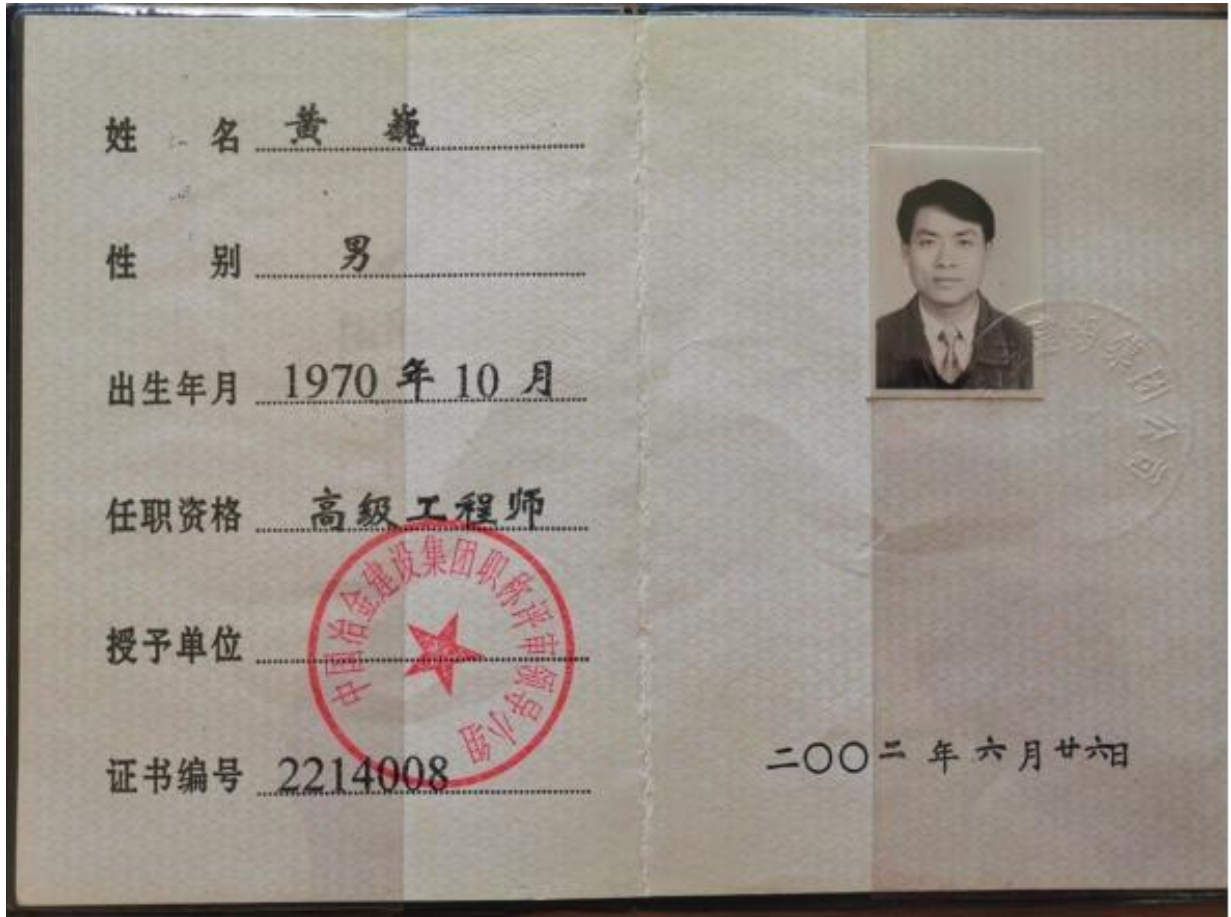 姓 名 黄 巍
性 别 男
出生年月 1970 年 10 月
任职资格 高级工程师
授予单位
中国冶金建设集团职称评审领导小组
证书编号 2214008
集团公司
二〇〇二 年 六 月 廿六日